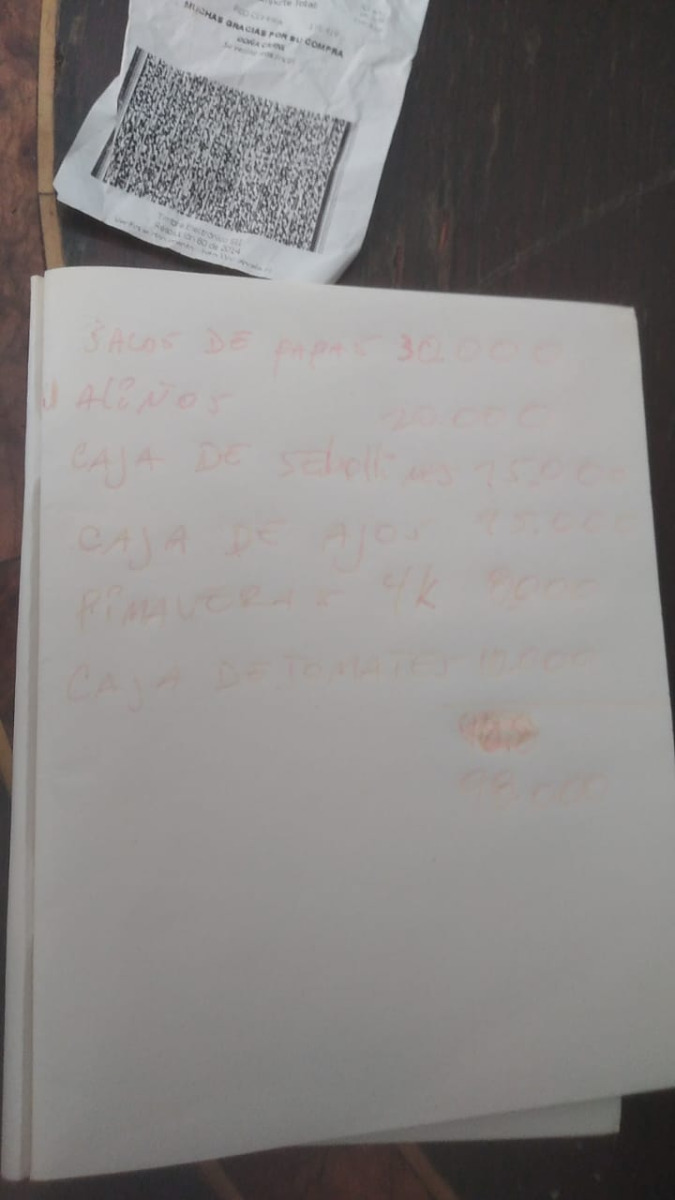 MUCHAS GRACIAS POR SU COMPRA
Timbre Electrónico SII
3 SACOS DE PAPAS 30.000
ALIÑOS 20.000
CAJA DE 15.000
CAJA DE AJOS 15.000
PIMAVERAS 4K 8000
CAJA DE TOMATES 10.000
98.000